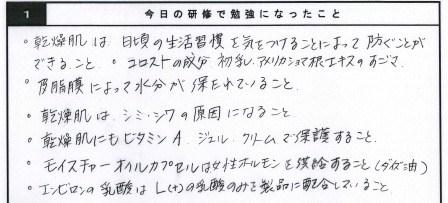 1 今日の研修で勉強になったこと
・乾燥肌は日頃の生活習慣を気をつけることによって防ぐことが
できること. ・コロストの成分 初乳.アメリカショマ根エキスのおごそ.
皮脂膜によって水分が保たれていること.
・乾燥肌は、シミ・シワの原因になること.
・乾燥肌にもビタミンA.ジェル.クリームで保護すること.
・モイスチャーオイルカプセルは女性ホルモンを供給すること(ダイズ油)
・エンビロンの乳酸はL(+)の乳酸のみを製品に配合していること